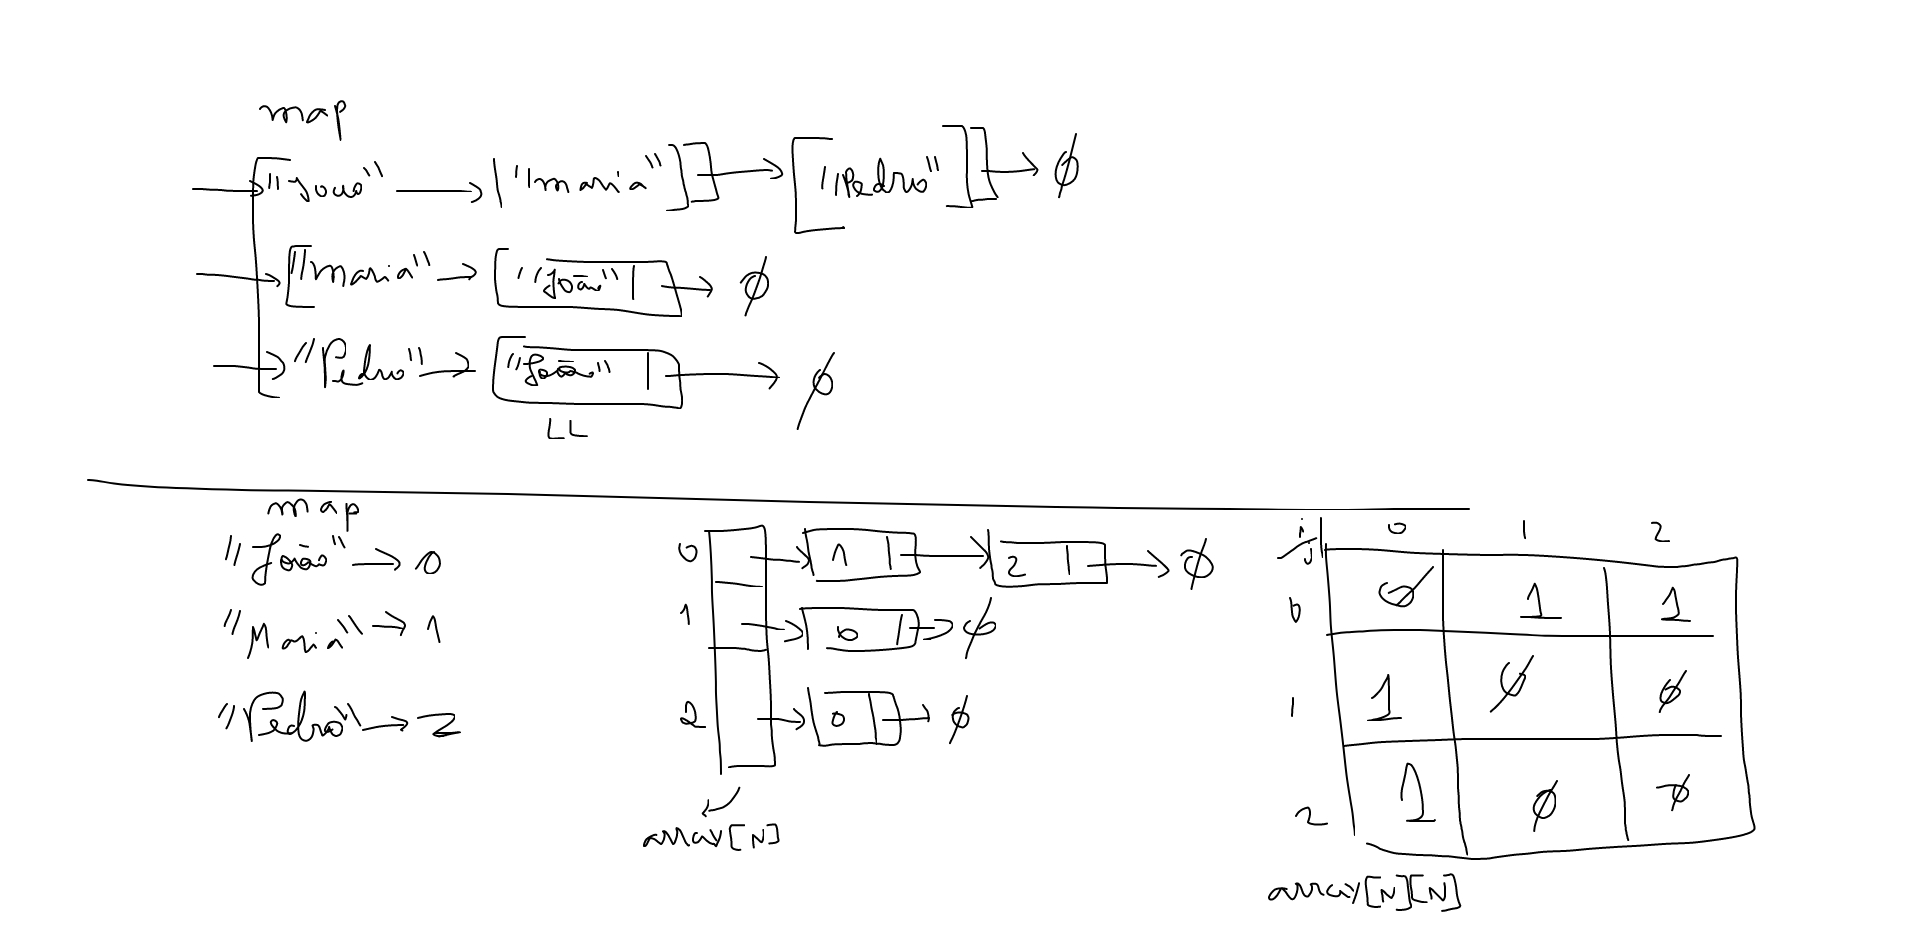 map
"João" → "maria" → "Pedro" → ∅
"maria" → "João" → ∅
"Pedro" → "João" → ∅
LL
map
"João" → 0
"Maria" → 1
"Pedro" → 2
0 → 1 → 2 → ∅
1 → 0 → ∅
2 → 0 → ∅
array[N]
i/j 0 1 2
0 ∅ 1 1
1 1 ∅ ∅
2 1 ∅ ∅
array[N][N]